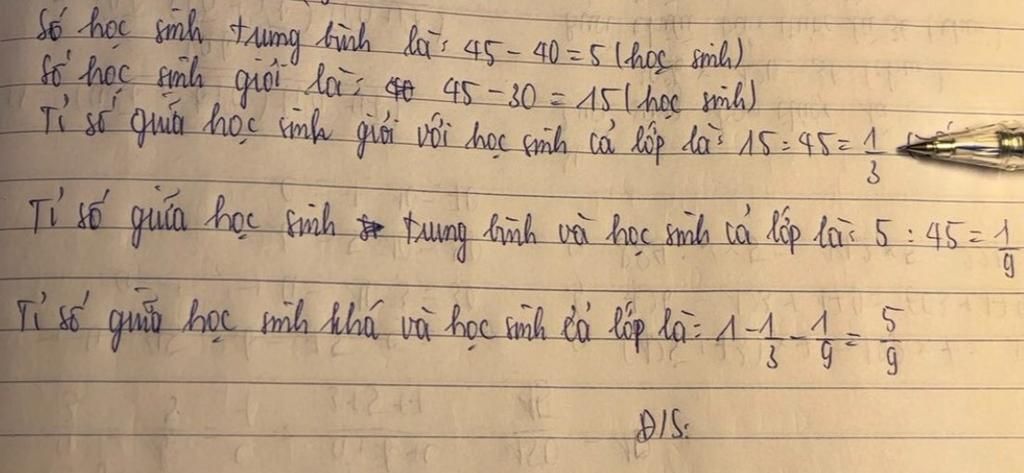 Số học sinh trung bình là: 45 - 40 = 5 (học sinh)
Số học sinh giỏi là: 45 - 30 = 15 (học sinh)
Tỉ số giữa học sinh giỏi với học sinh cả lớp là: 15 : 45 = 1/3
Tỉ số giữa học sinh trung bình và học sinh cả lớp là: 5 : 45 = 1/9
Tỉ số giữa học sinh khá và học sinh cả lớp là: 1 - 1/3 - 1/9 = 5/9
Đ/S: